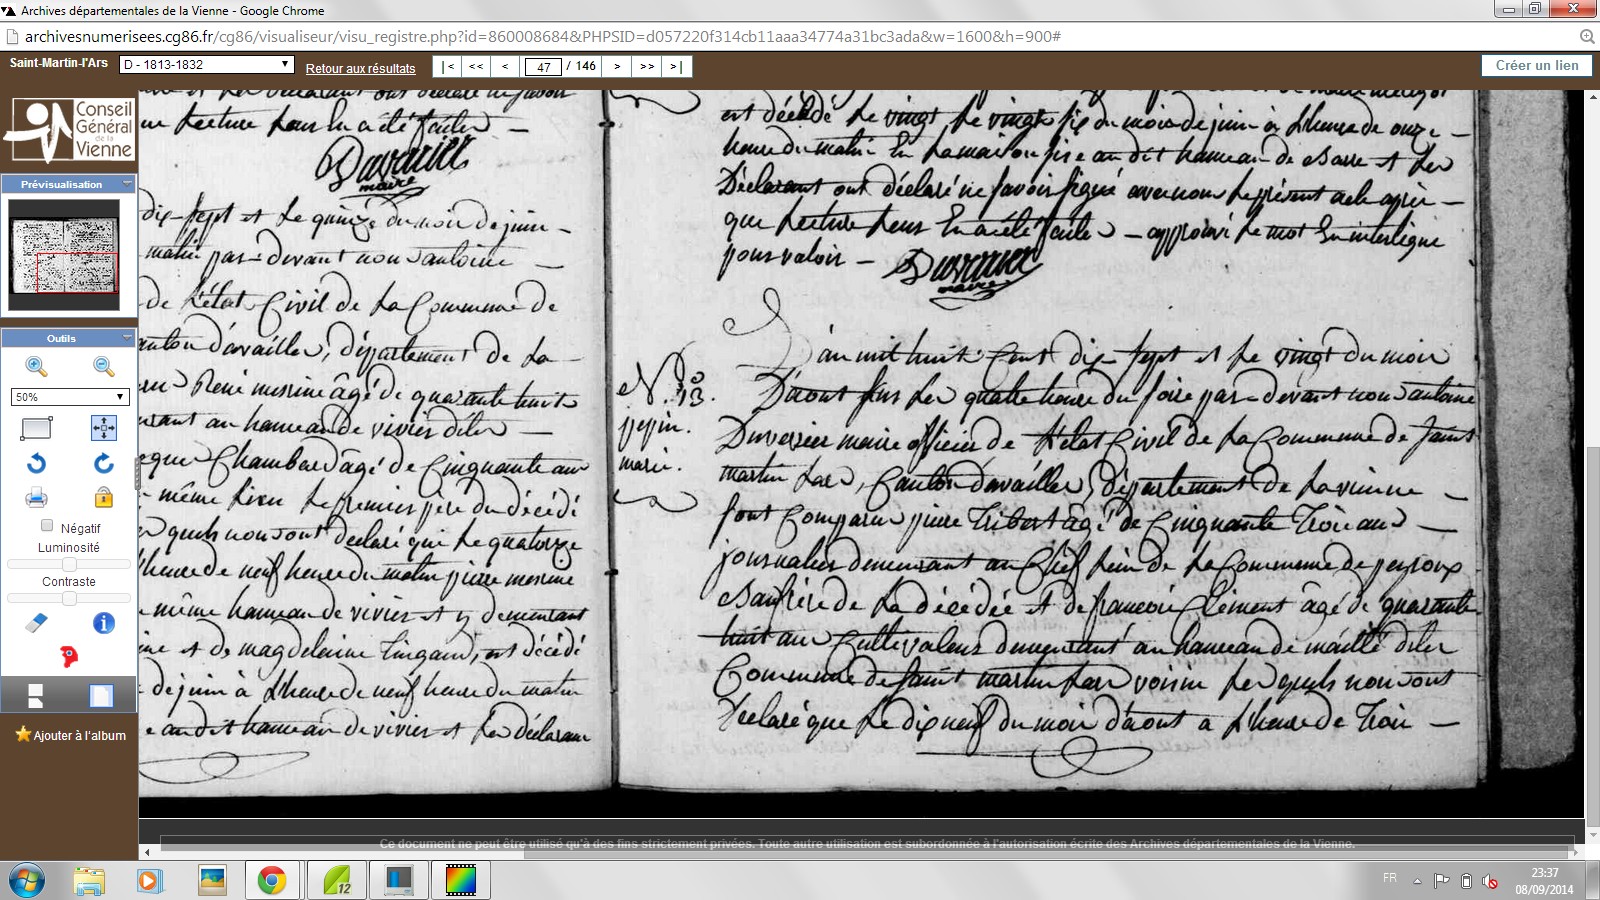 Archives départementales de la Vienne - Google Chrome
archivesnumerisees.cg86.fr/cg86/visualiseur/visu_registre.php?id=860008684&PHPSID=d057220f314cb11aaa34774a31bc3ada&w=1600&h=900#
Saint-Martin-l'Ars
D - 1813-1832
Retour aux résultats
|< << < 47 / 146 > >> >|
Créer un lien
Conseil
Général
de la
Vienne
Prévisualisation
Outils
50%
Négatif
Luminosité
Contraste
Ajouter à l'album
que lecture leurs en a été faite
Duverrier
maire
dix sept et le quinze du mois de juin
matin par devant nous antoine
de l'état Civil de la Commune de
canton d'availles, département de la
René mesrine âgé de quarante huit
au hameau de vivier diles
Chambord âgé de Cinquante ans
même lieu le premier père du décédé
quels nous ont déclaré que le quatorze
l'heure de neuf heure du matin pierre mesrine
même hameau de vivier et y demeurant
et de magdeleine, est décédé
de juin à l'heure de neuf heure du matin
audit hameau de vivier et les déclarans
est décédé le vingt le vingt six du mois de juin à l'heure de onze
heure du matin En la maison sise audit hameau de et les
Déclarant ont déclaré ne savoir signé avec nous le présent acte après
que lecture leurs En a été faite approuvé le mot En interligne
pour valoir
Duverrier
maire
N° 13.
pepin.
marie.
L'an mil huit Cent dix sept et le vingt du mois
D'août sur les quatre heure du soire par devant nous antoine
Duverrier maire officier de l'état Civil de la Commune de saint
martin Lars, Canton d'availles, département de la vienne
sont Comparu pierre Tribert âgé de Cinquante Trois ans
journalier demeurant au Chef lieu de la Commune de peyroux
Beaufrère de la décédée et de francois Clément âgé de quarante
huit ans Cultivateur demeurant au hameau de maillé diles
Commune de saint martin Lars voisin les quels nous ont
Déclaré que le dix neuf du mois d'août a l'heure de Trois
Ce document ne peut être utilisé qu'à des fins strictement privées. Toute autre utilisation est subordonnée à l'autorisation écrite des Archives départementales de la Vienne.
12
FR
23:37
08/09/2014